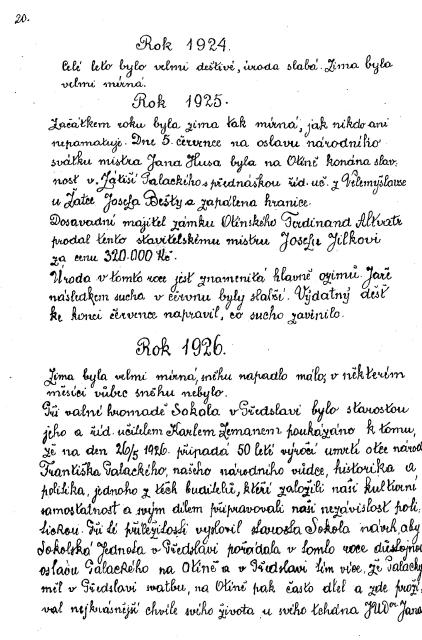 20.
Rok 1924.
Celé léto bylo velmi deštivé, úroda slabá. Zima byla
velmi mírná.
Rok 1925.
Začátkem roku byla zima tak mírná, jak nikdo ani
nepamatuje. Dne 5. července na oslavu národního
svátku mistra Jana Husa byla na Otíně konána slav-
nost v "Zátiší" Palackého s přednáškou říd. uč. z
u Žatce Josefa Bešty a zapálena hranice.
Dosavadní majitel zámku Otínského Ferdinand
prodal tento stavitelskému mistru Josefu Jílkovi
za cenu 320.000 Kč.
Úroda v tomto roce jest znamenitá hlavně ozimů. Jaře
následkem sucha v červnu byly slabší. Výdatný déšť
ke konci července napravil, co sucho zavinilo.
Rok 1926.
Zima byla velmi mírná, sněhu napadlo málo, v některém
měsíci vůbec sněhu nebylo.
Při valné hromadě Sokola v Předslavi bylo starostou
jeho a říd. učitelem Karlem Zemanem poukázáno k tomu,
že na den 26/5 1926. připadá 50 letí výročí úmrtí otce národ
Františka Palackého, našeho národního vůdce, historika a
politika, jednoho z těch buditelů, kteří založili naši kulturní
samostatnost a svým dílem připravovali naši nezávislost poli-
tickou. Při té příležitosti vyslovil starosta Sokola návrh, aby
Sokolská Jednota v Předslavi pořádala v tomto roce důstojnou
oslavu Palackého na Otíně a v Předslavi tím více, že Palacký
měl v Předslavi svatbu, na Otíně pak často dlel a zde proží-
val nejkrásnější chvíle svého života u svého tchána JUDra Jana